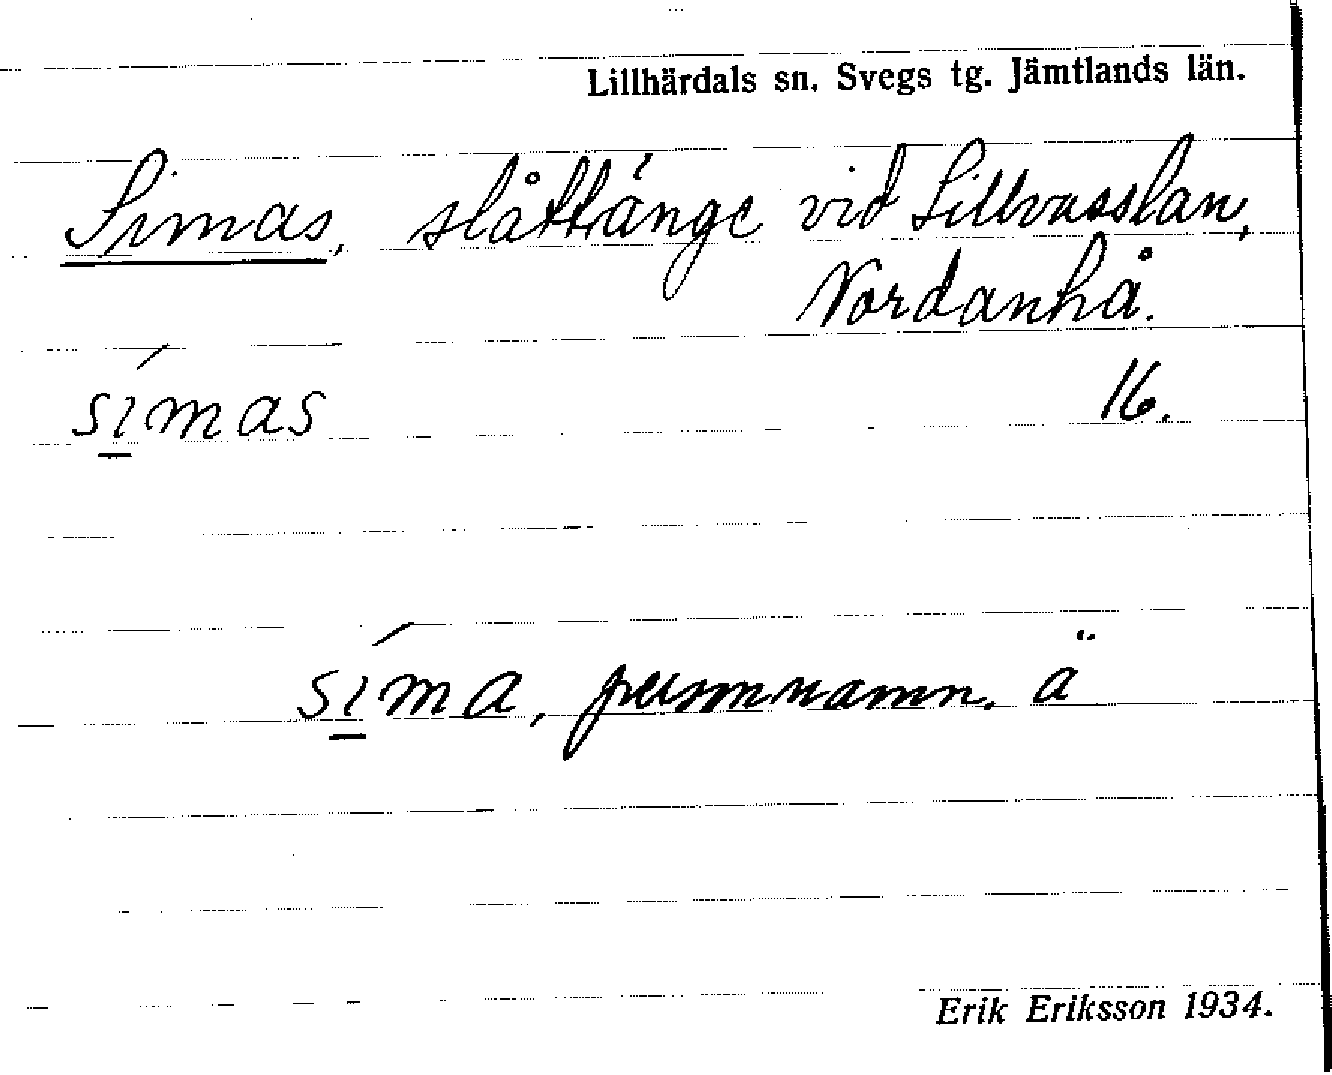 Lillhärdals sn. Svegs tg. Jämtlands län.
Simas, slåttänge vid Lillvasslan,
Nordanhå.
símas 16.
síma, personnamn. ä
Erik Eriksson 1934.